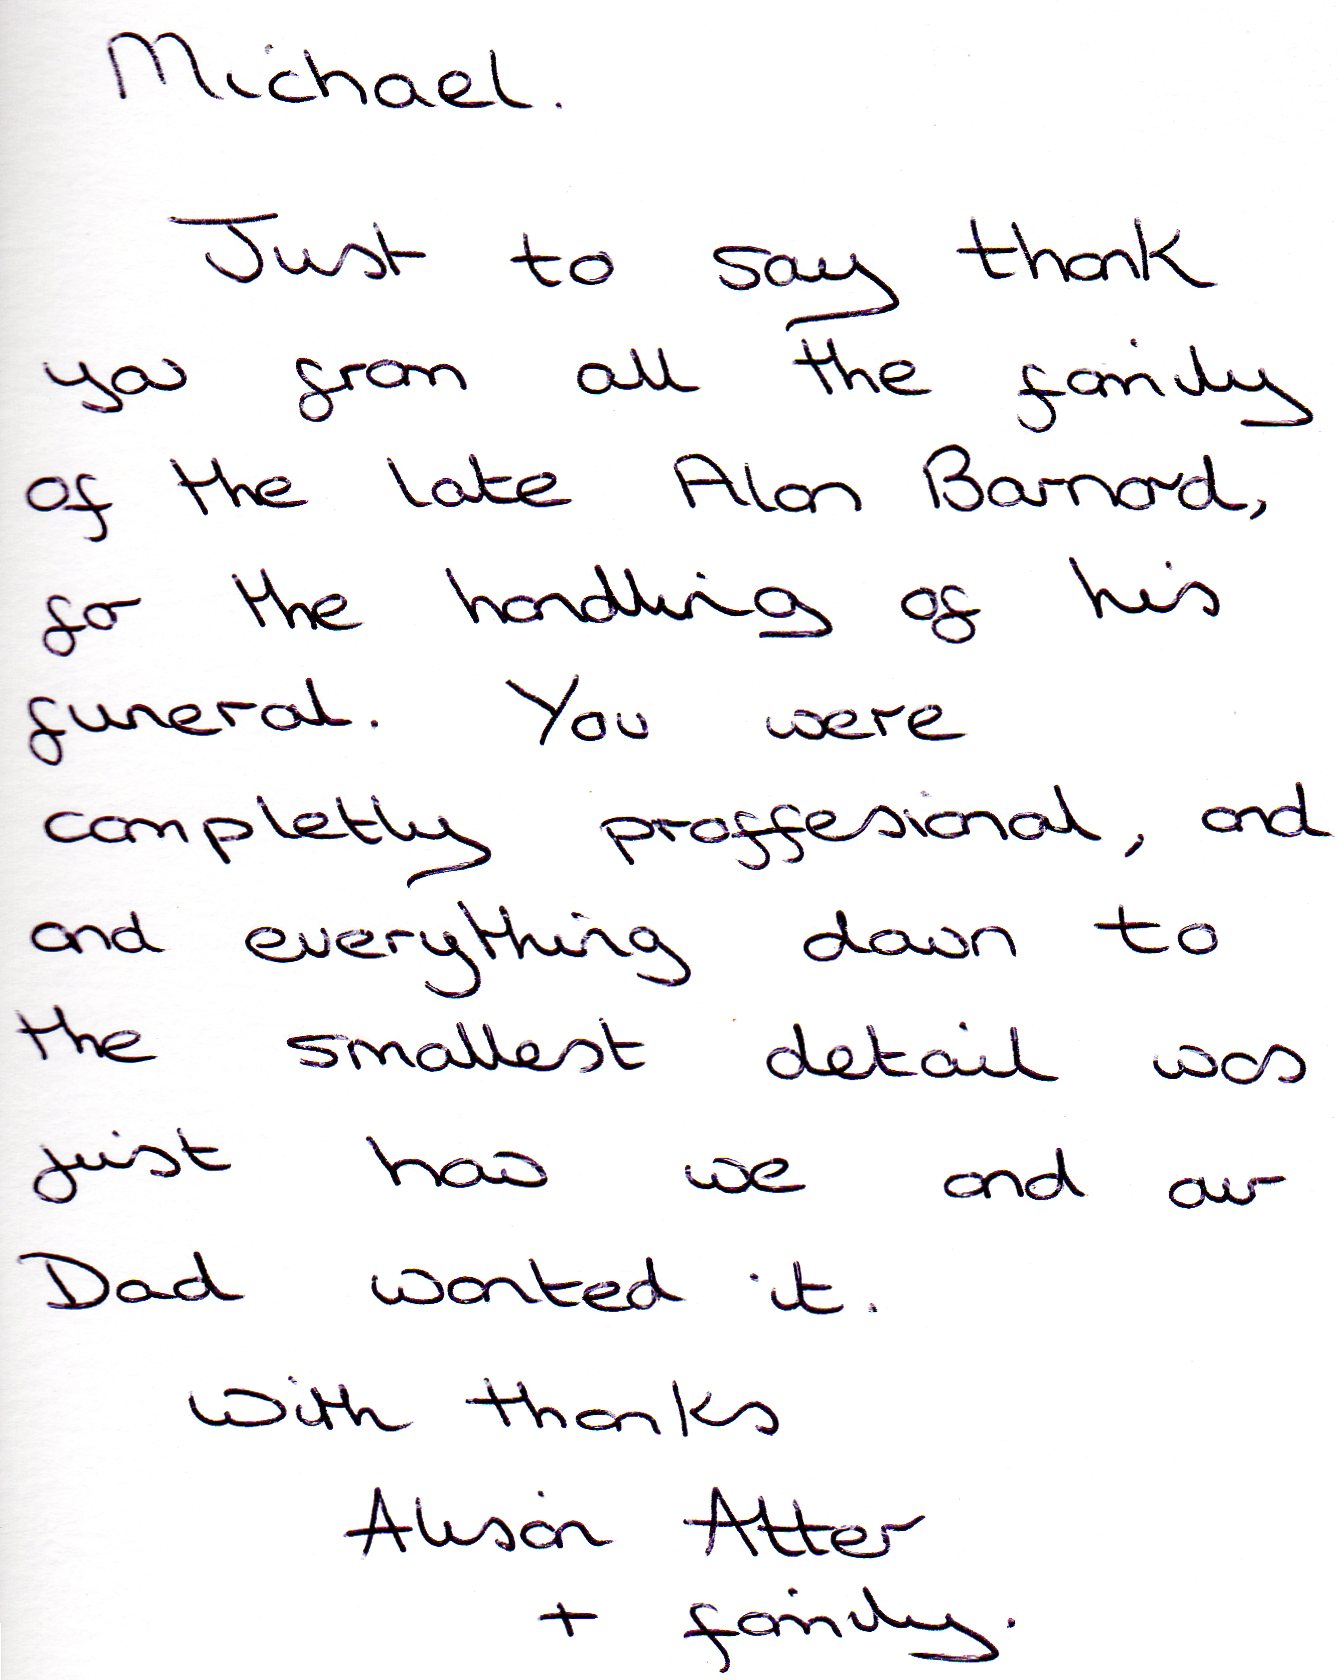 Michael.
Just to say thank
you from all the family
of the late Alan Barnard,
for the handling of his
funeral. You were
completly proffesional, and
and everything down to
the smallest detail was
just how we and our
Dad wanted it.
With thanks
Alison Atter
+ family.